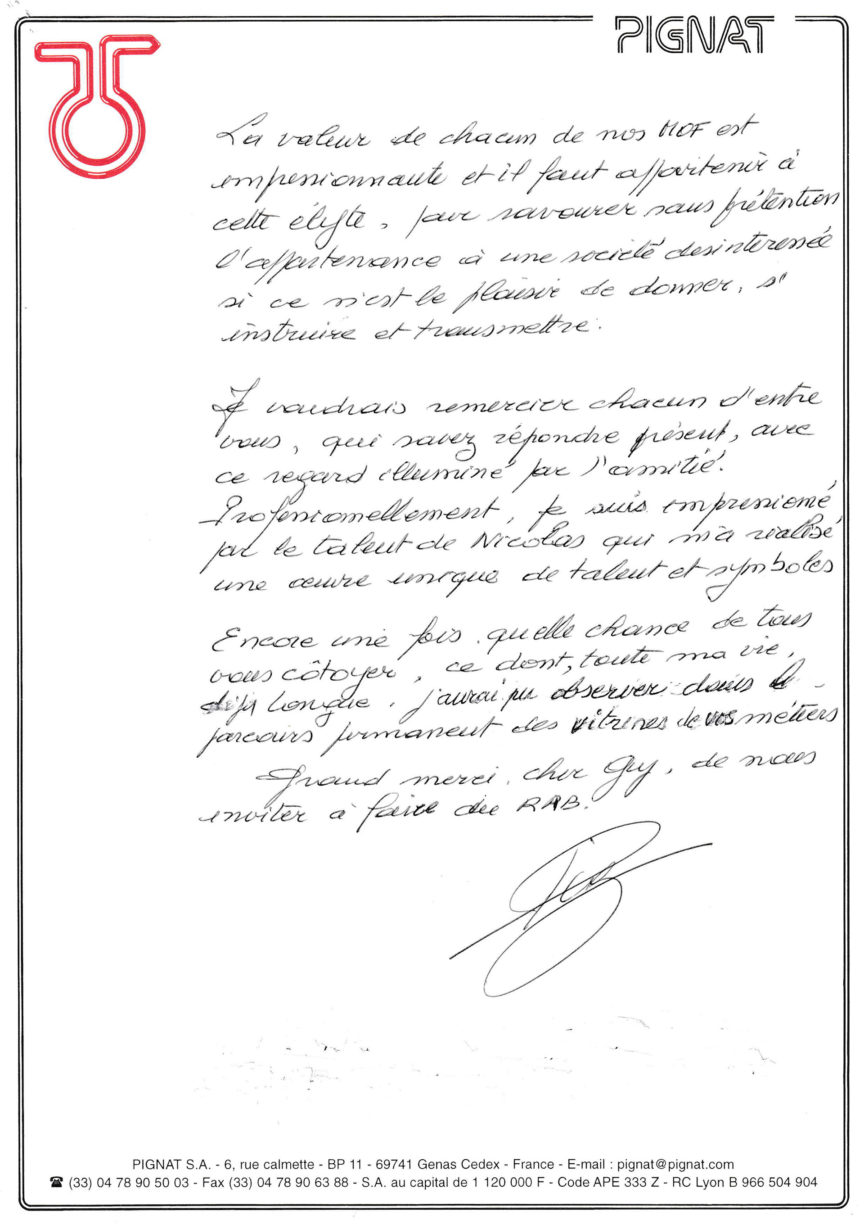 PIGNAT
La valeur de chacun de nos MOF est
impressionnante et il faut appartenir à
cette élyte, pour savourer sans prétention
l'appartenance à une société desinteressée
si ce n'est le plaisir de donner, s'
instruire et transmettre.
Je voudrais remercier chacun d'entre
vous, qui savez répondre présent, avec
ce regard illuminé par l'amitié.
Professionnellement, je suis impressionné
par le talent de Nicolas qui m'a réalisé
une œuvre unique de talent et symboles
Encore une fois, quelle chance de tous
vous côtoyer, ce dont, toute ma vie,
déjà longue, j'aurai pu observer dans le
parcours permanent des vitrines de vos métiers
Grand merci, cher Guy, de nous
inviter à faire du RAB.
PIGNAT S.A. - 6, rue calmette - BP 11 - 69741 Genas Cedex - France - E-mail : pignat@pignat.com
☎ (33) 04 78 90 50 03 - Fax (33) 04 78 90 63 88 - S.A. au capital de 1 120 000 F - Code APE 333 Z - RC Lyon B 966 504 904